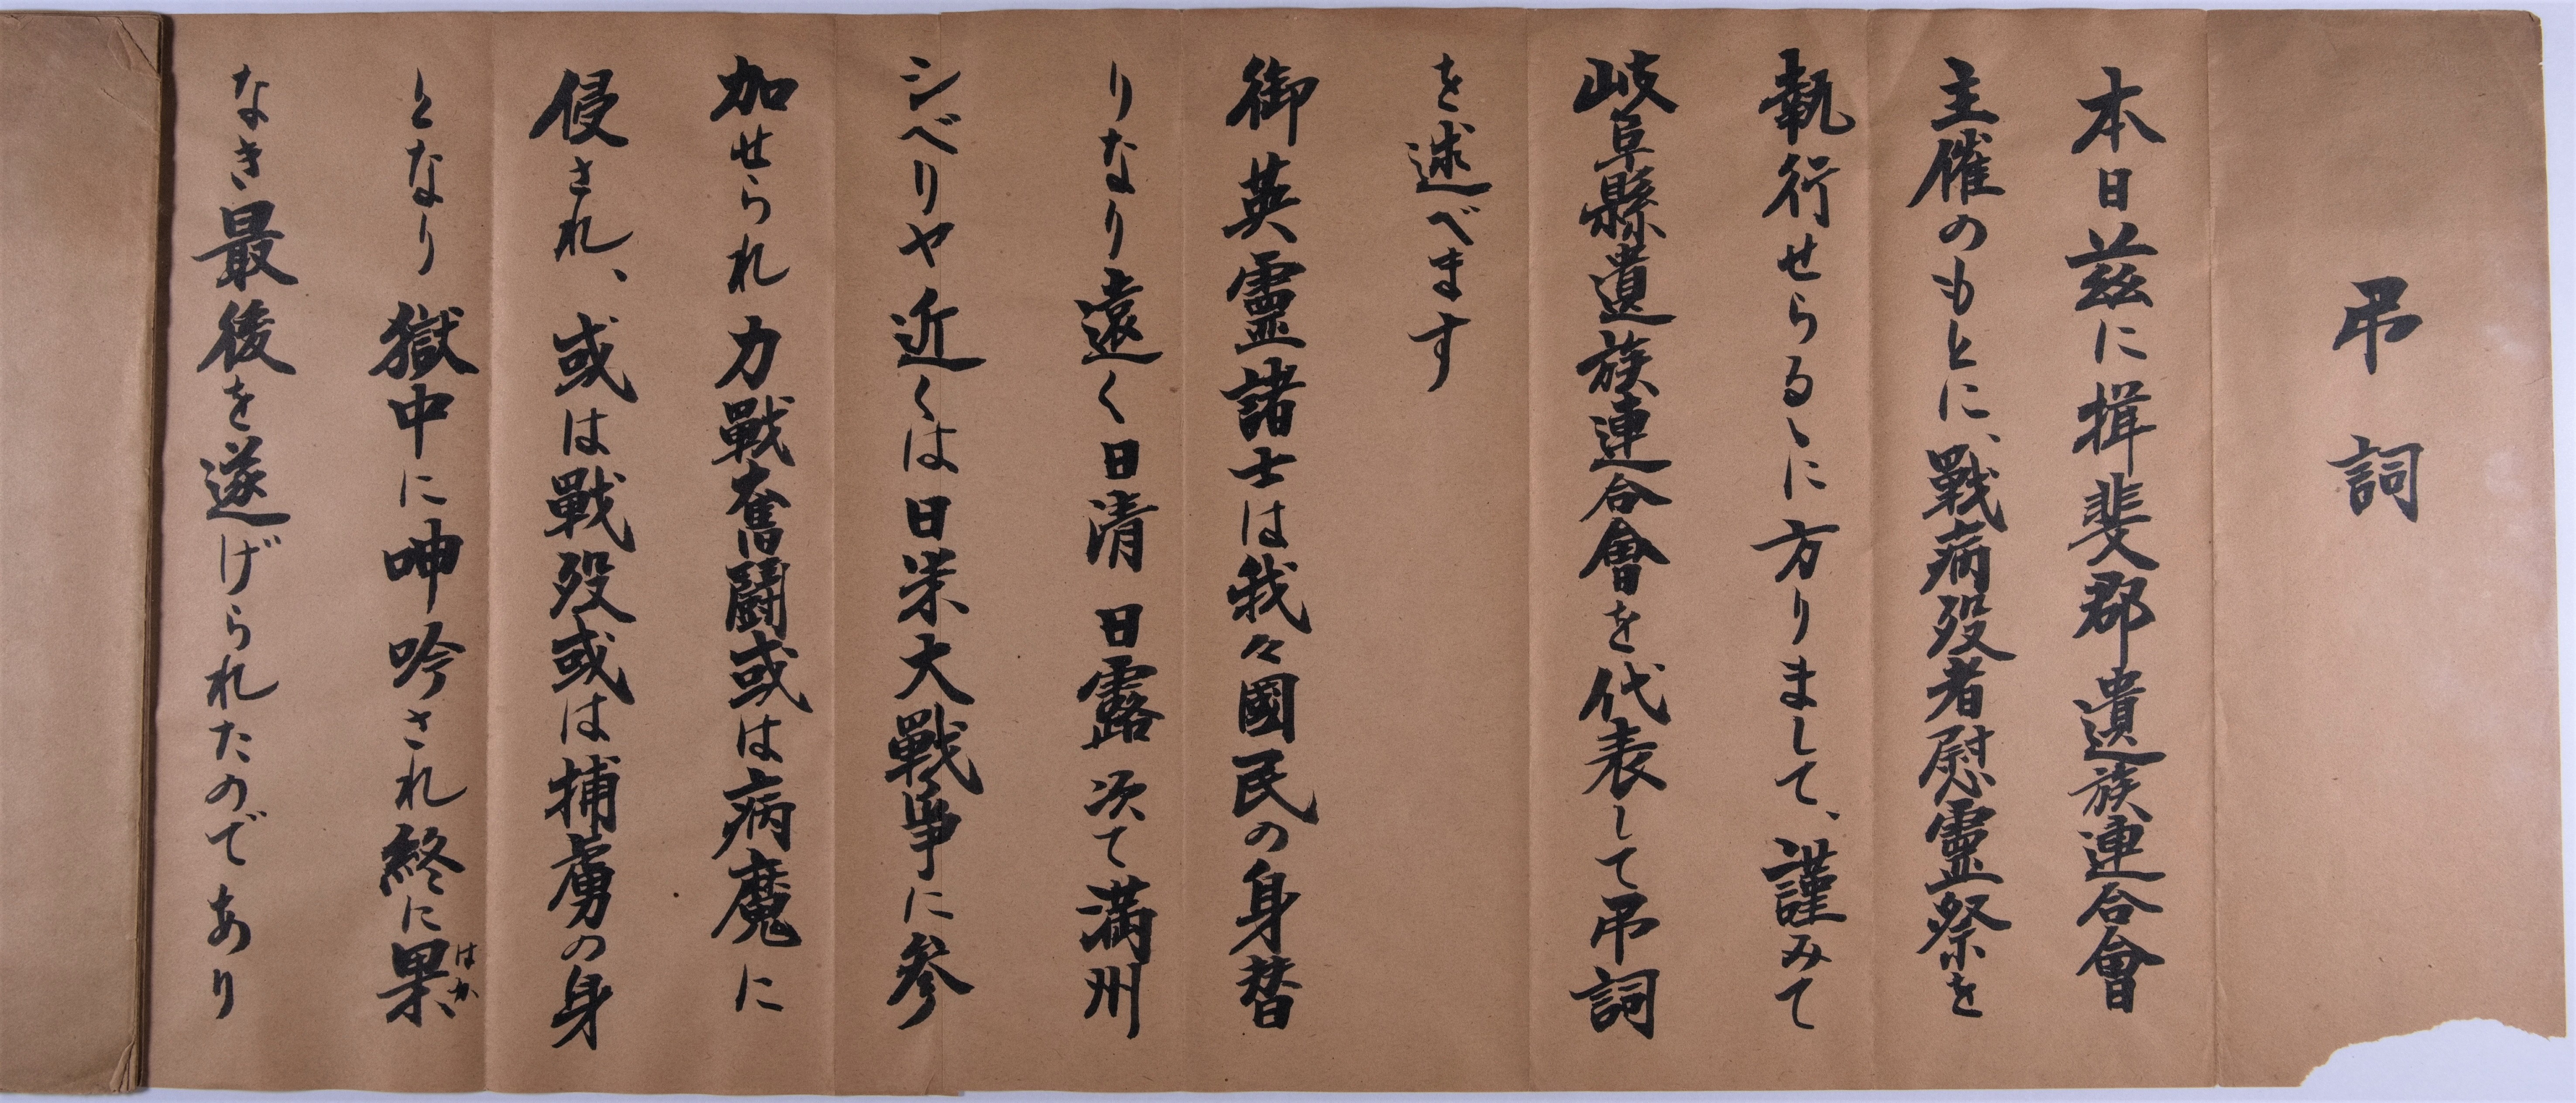 弔詞
本日茲に揖斐郡遺族連合會
主催のもとに、戰病歿者慰霊祭を
執行せらるゝに方りまして、謹みて
岐阜縣遺族連合會を代表して弔詞
を述べます
御英霊諸士は我々國民の身替
りなり遠く日清日露次て満州
シベリヤ近くは日米大戰爭に参
加せられ力戰奮闘或は病魔に
侵され、或は戰歿或は捕虜の身
となり獄中に呻吟され終に果
はか
なき最後を遂げられたのであり